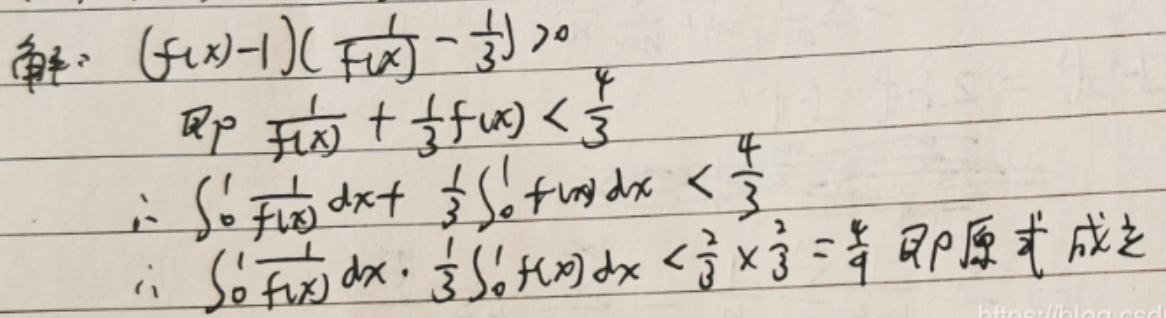 解: (f(x)-1)(1/f(x) - 1/3) >0
即 1/f(x) + 1/3 f(x) < 4/3
∴ ∫₀¹ 1/f(x) dx + 1/3 ∫₀¹ f(x) dx < 4/3
∴ ∫₀¹ 1/f(x) dx · 1/3 ∫₀¹ f(x) dx < 2/3 × 2/3 = 4/9 即原式成立
https://blog.csd